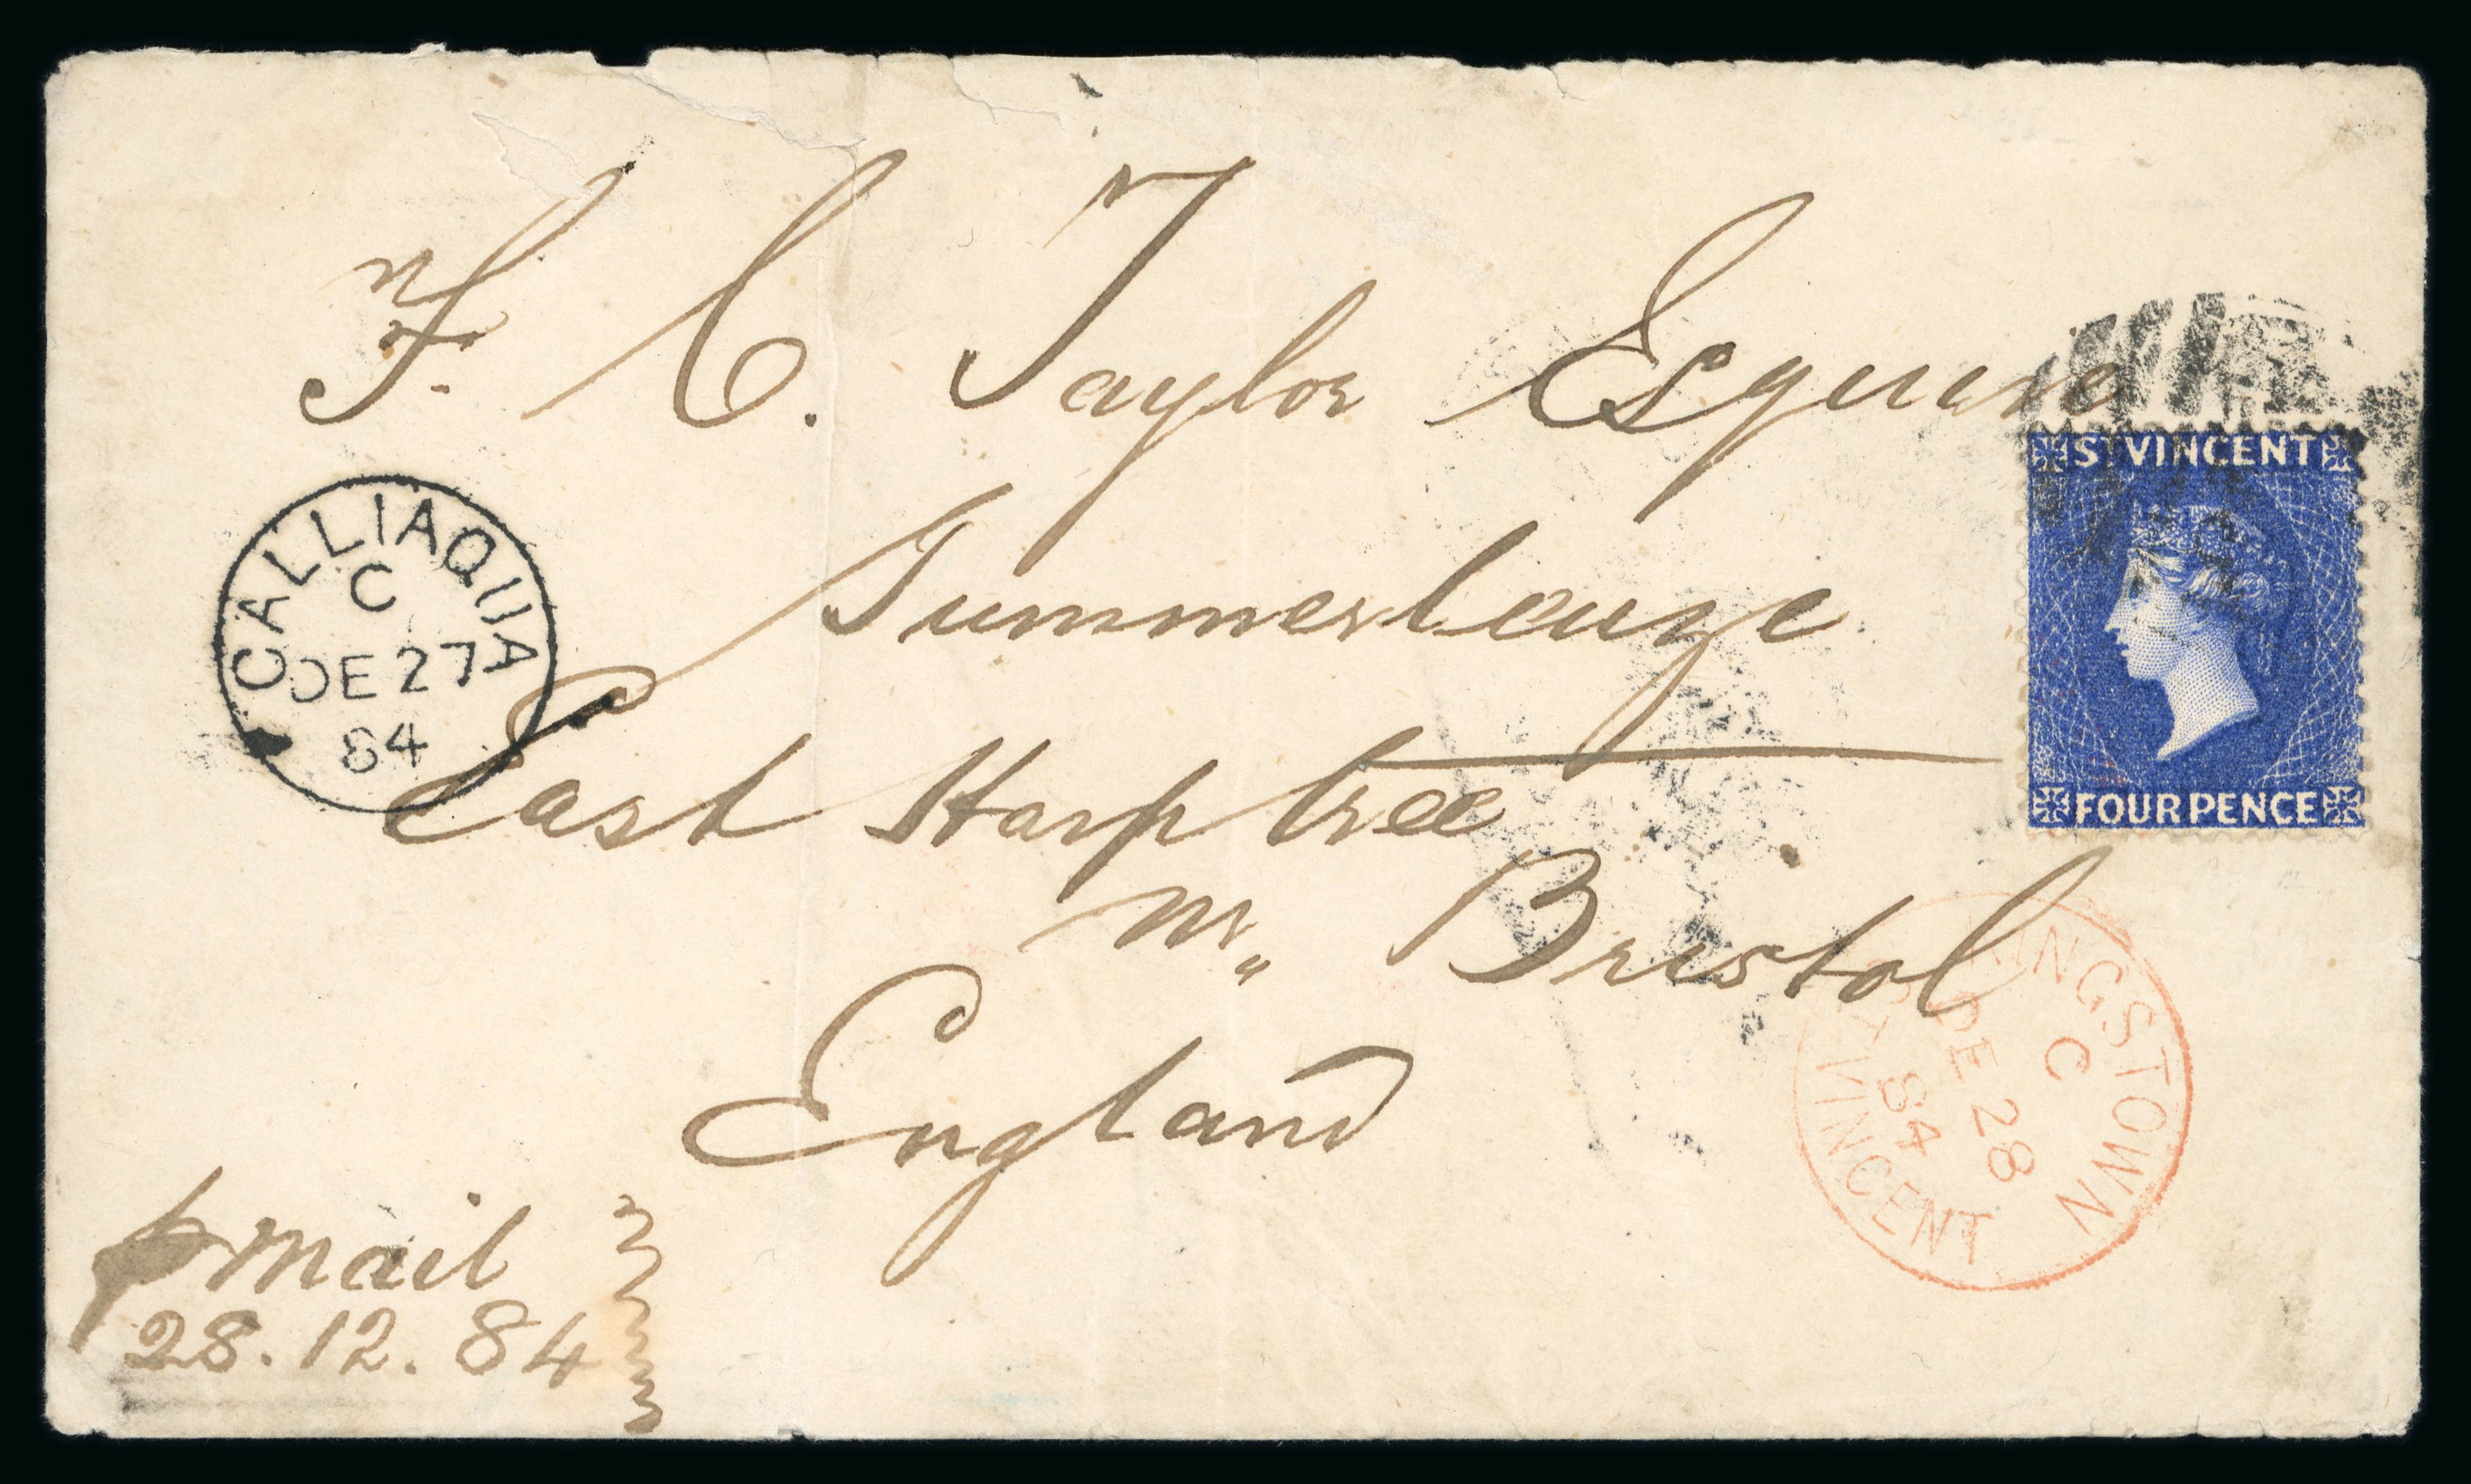 F. C. Taylor Esquire
ST VINCENT
CALLIAQUA
C
DE 27
84
Summerleaze
East Harptree
FOUR PENCE
Nr. Bristol
England
KINGSTOWN
C
DE 28
84
ST VINCENT
p mail
28.12.84